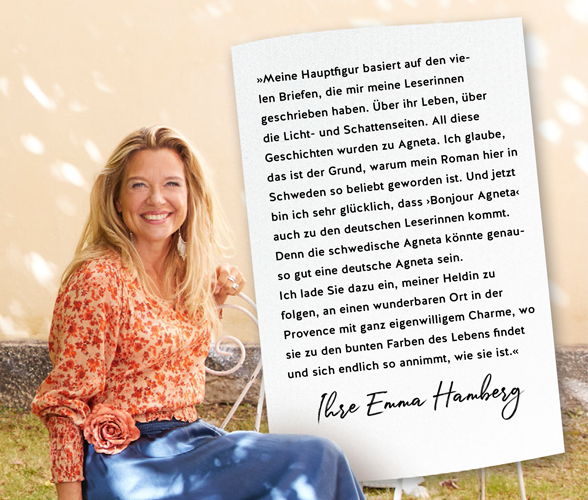 »Meine Hauptfigur basiert auf den vie-
len Briefen, die mir meine Leserinnen
geschrieben haben. Über ihr Leben, über
die Licht- und Schattenseiten. All diese
Geschichten wurden zu Agneta. Ich glaube,
das ist der Grund, warum mein Roman hier in
Schweden so beliebt geworden ist. Und jetzt
bin ich sehr glücklich, dass ›Bonjour Agneta‹
auch zu den deutschen Leserinnen kommt.
Denn die schwedische Agneta könnte genau-
so gut eine deutsche Agneta sein.
Ich lade Sie dazu ein, meiner Heldin zu
folgen, an einen wunderbaren Ort in der
Provence mit ganz eigenwilligem Charme, wo
sie zu den bunten Farben des Lebens findet
und sich endlich so annimmt, wie sie ist.«
Ihre Emma Hamberg